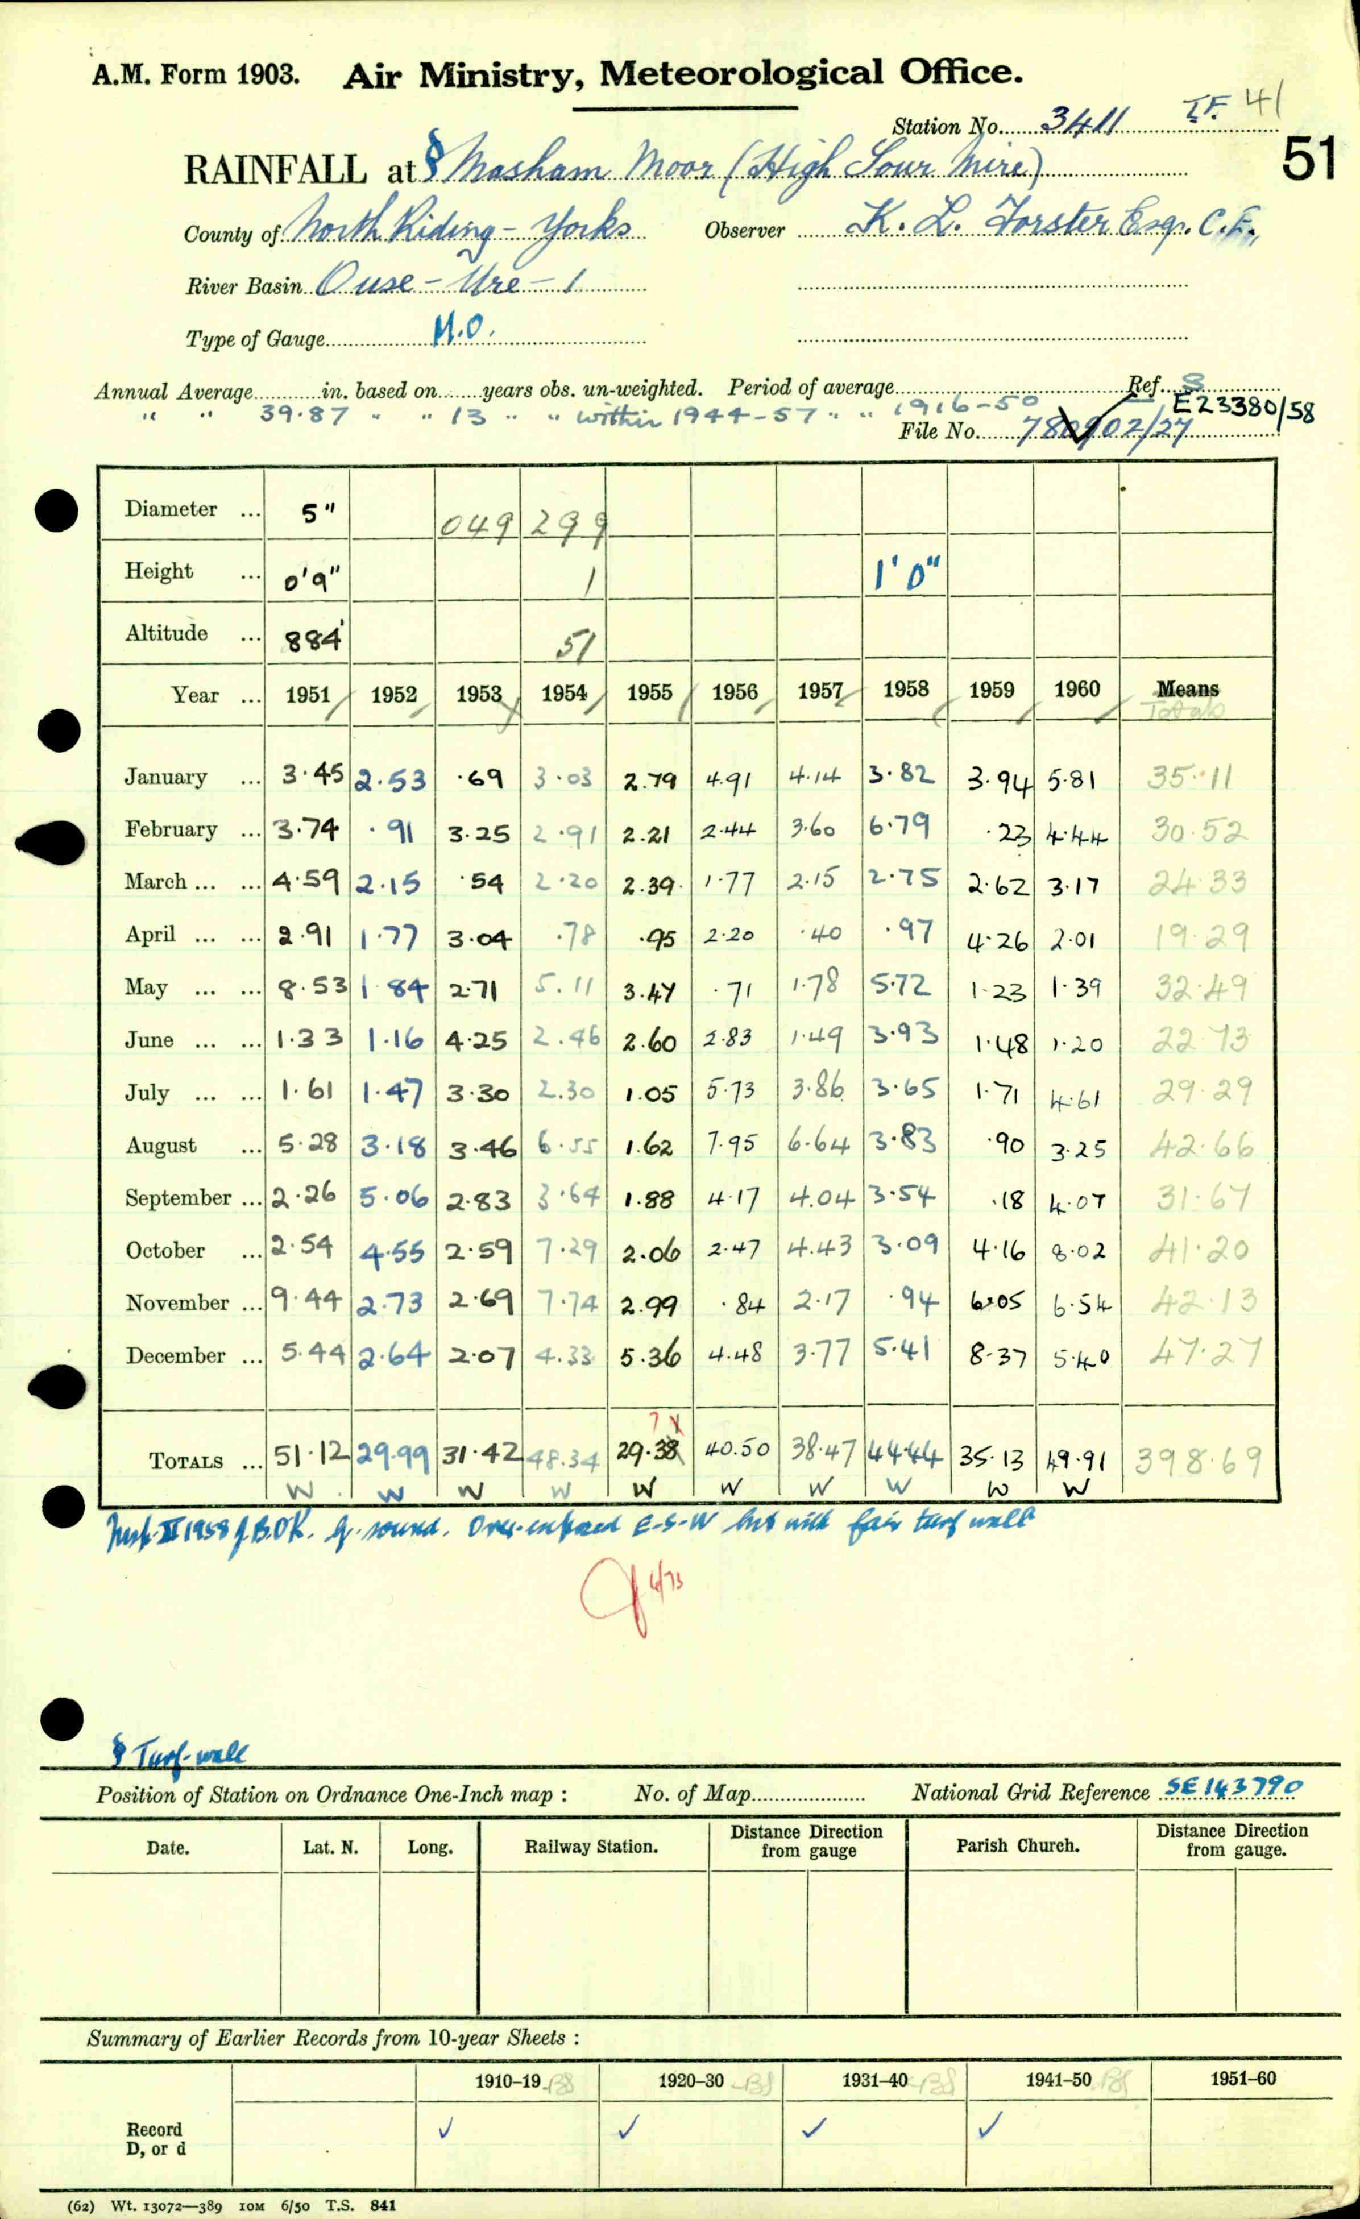 A.M. Form 1903. Air Ministry, Meteorological Office.
Station No. 3411 I.F. 41
51
RAINFALL at § Masham Moor (High Sour Mire)
County of North Riding - Yorks Observer K. L. Forster Esqr. C.E.,
River Basin Ouse - Ure - 1
Type of Gauge M.O.
Annual Average in. based on years obs. un-weighted. Period of average Ref. S
" " 39.87 " " 13 " " within 1944-57 " " 1916-50 E23380/58
File No. 780902/27
Diameter ... 5" 049 299
Height ... 0'9" 1 1'0"
Altitude ... 884' 51
Year ... 1951 1952 1953 1954 1955 1956 1957 1958 1959 1960 Means
Totals
January ... 3.45 2.53 .69 3.03 2.79 4.91 4.14 3.82 3.94 5.81 35.11
February ... 3.74 .91 3.25 2.91 2.21 2.44 3.60 6.79 .23 4.44 30.52
March ... ... 4.59 2.15 .54 2.20 2.39 1.77 2.15 2.75 2.62 3.17 24.33
April ... ... 2.91 1.77 3.04 .78 .95 2.20 .40 .97 4.26 2.01 19.29
May ... ... 8.53 1.84 2.71 5.11 3.47 .71 1.78 5.72 1.23 1.39 32.49
June ... ... 1.33 1.16 4.25 2.46 2.60 2.83 1.49 3.93 1.48 1.20 22.73
July ... ... 1.61 1.47 3.30 2.30 1.05 5.73 3.86 3.65 1.71 4.61 29.29
August ... 5.28 3.18 3.46 6.55 1.62 7.95 6.64 3.83 .90 3.25 42.66
September ... 2.26 5.06 2.83 3.64 1.88 4.17 4.04 3.54 .18 4.07 31.67
October ... 2.54 4.55 2.59 7.29 2.06 2.47 4.43 3.09 4.16 8.02 41.20
November ... 9.44 2.73 2.69 7.74 2.99 .84 2.17 .94 6.05 6.54 42.13
December ... 5.44 2.64 2.07 4.33 5.36 4.48 3.77 5.41 8.37 5.40 47.27
7
TOTALS ... 51.12 29.99 31.42 48.34 29.38 40.50 38.47 44.44 35.13 49.91 398.69
W W W W W W W W W W
Insp. II 1958 J.B.OK. g. sound. Over-exposed E-S-W but with fair turf wall
4/73
§ Turf-wall
Position of Station on Ordnance One-Inch map : No. of Map National Grid Reference SE 143790
Date. Lat. N. Long. Railway Station. Distance from gauge Direction Parish Church. Distance from gauge. Direction
Summary of Earlier Records from 10-year Sheets :
1910–19 1920–30 1931–40 1941–50 1951–60
Record ✓ ✓ ✓ ✓
D, or d
(62) Wt. 13072—389 10M 6/50 T.S. 841